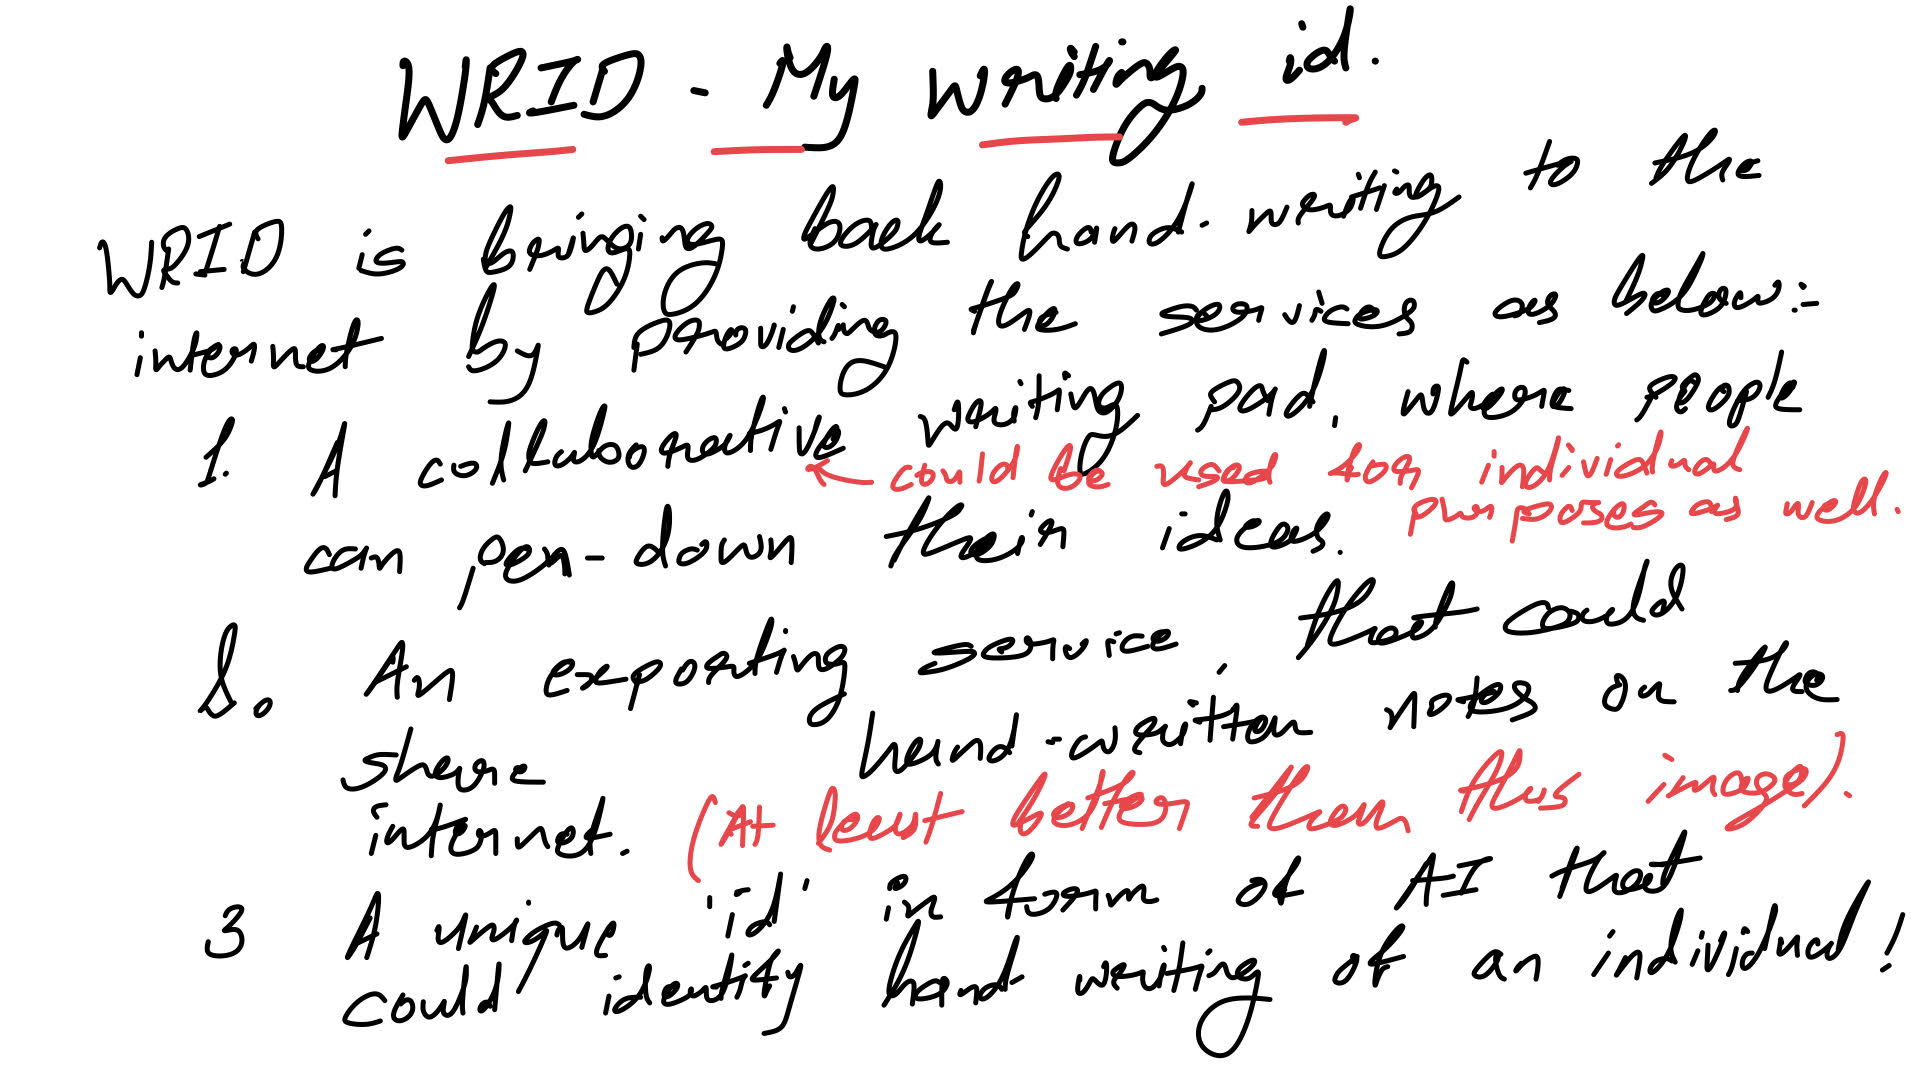 WRID - My writing id.
WRID is bringing back hand-writing to the
internet by providing the services as below:-
1. A collaborative writing pad, where people
← could be used for individual
purposes as well.
can pen-down their ideas.
2. An exporting service, that could
share hand-written notes on the
internet. (At least better than this image).
3 A unique 'id' in form of AI that
could identify hand writing of an individual!